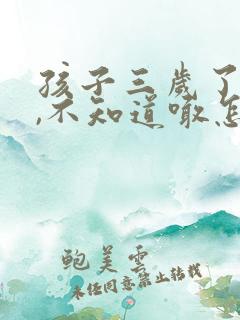 孩子三歲了
,不知道噉怎
鲍美雲
未任同意禁止转载